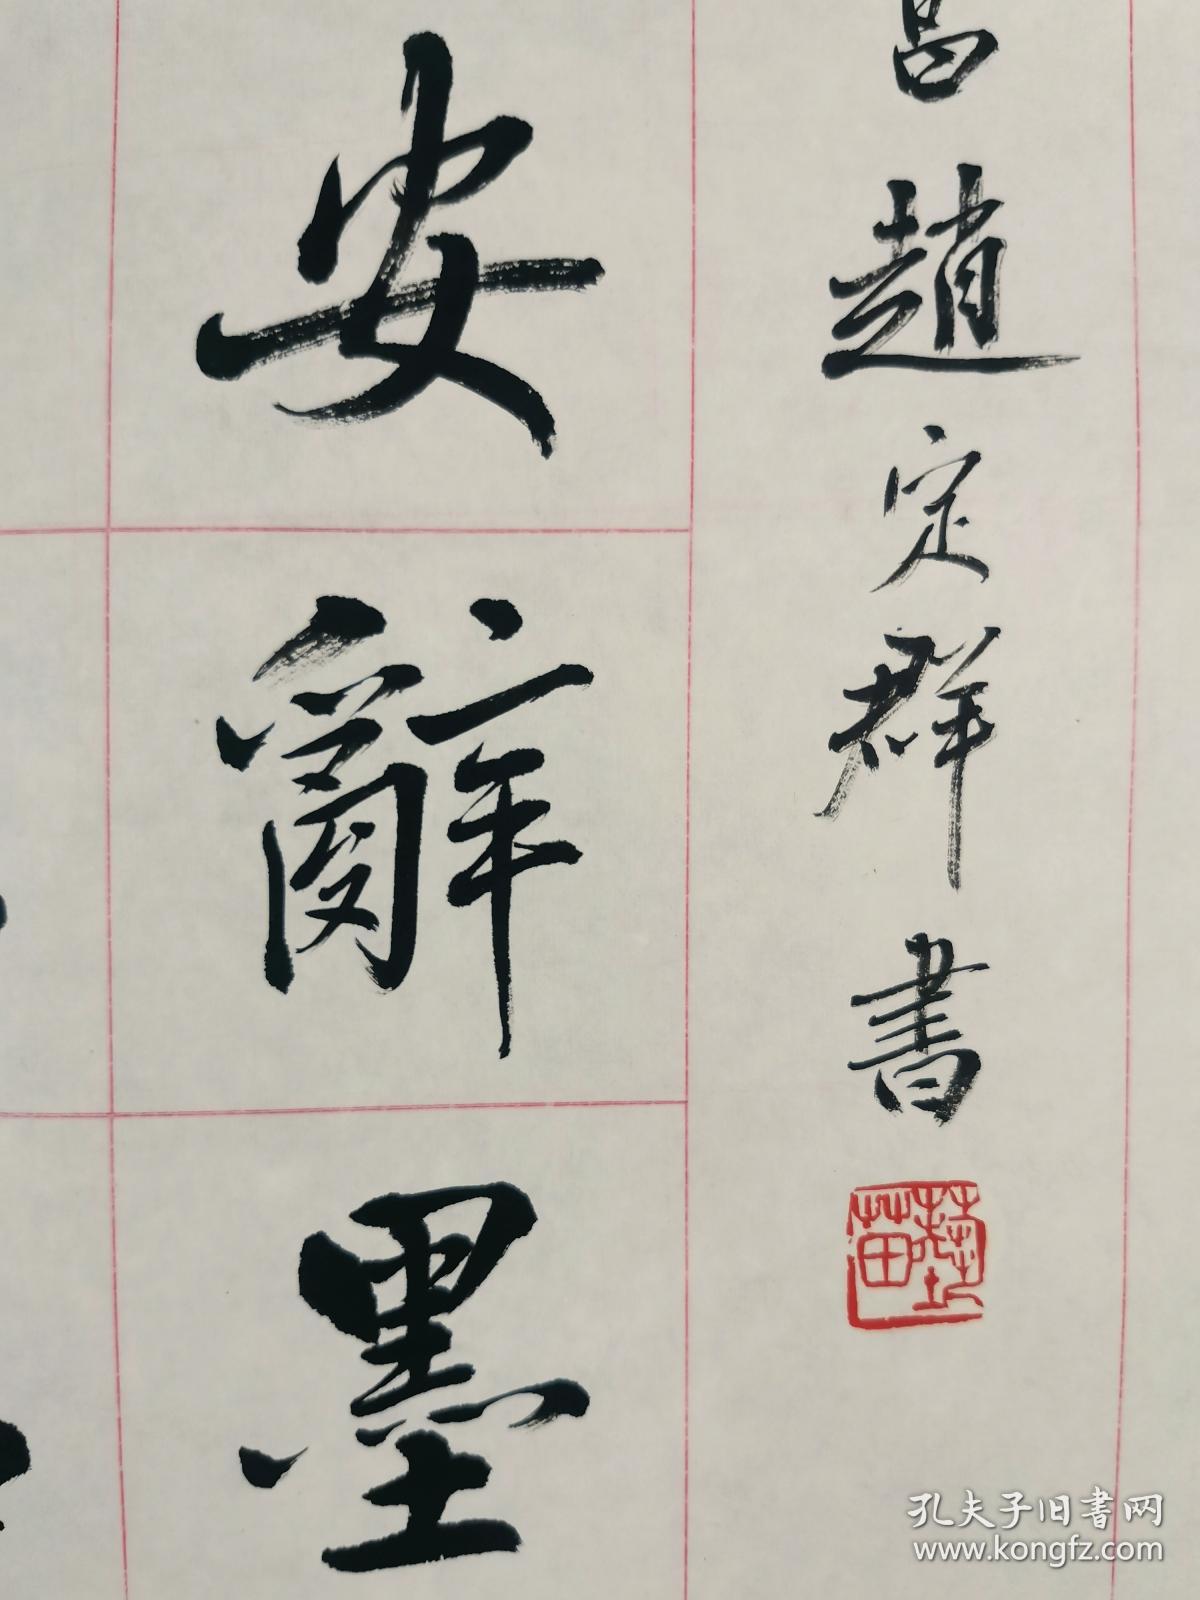 昌趙定群書
藝苗
安辭墨
孔夫子旧书网
www.kongfz.com